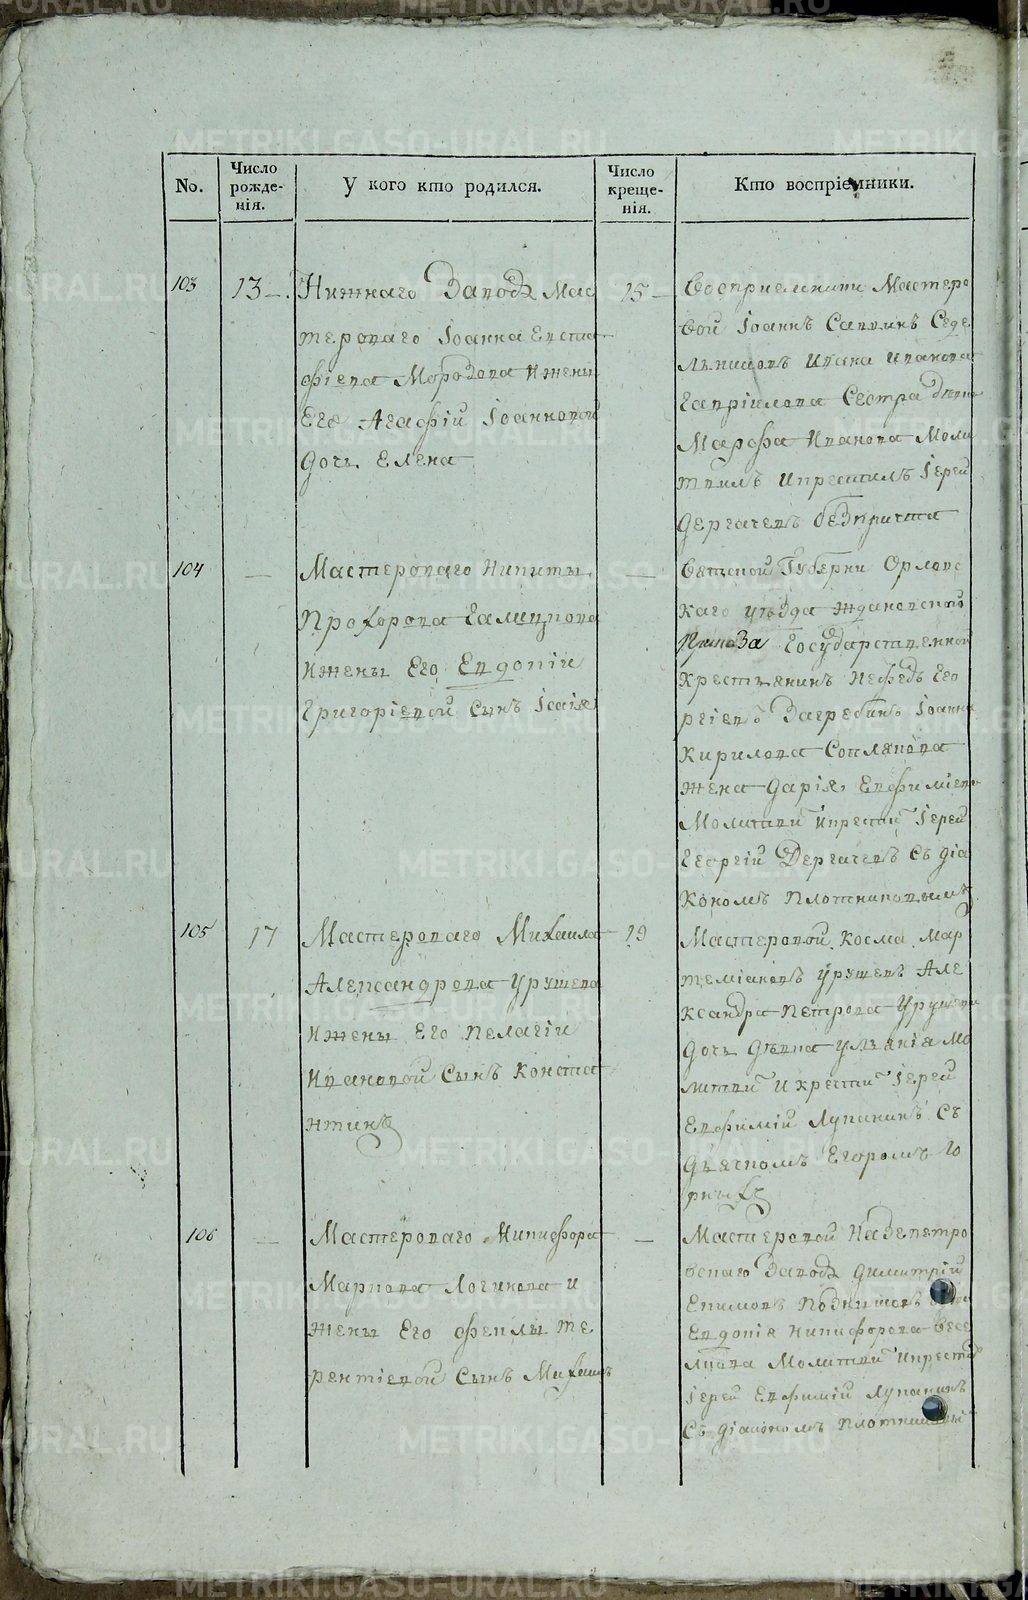 No.
Число рожде-нія.
У кого кто родился.
Число креще-нія.
Кто воспріемники.
103
13
Нижнаго Завода Мас
тероваго Іоанна Евста
фіева Морозова Ижены
Его Агафіи Іоанновой
Дочь Елена
15
Восприемники Мастеро
вой Іоаннъ Саввинъ
Ивана Иванова
Гавріилова Сестра
Марфа Иванова Моли
твилъ Икрестилъ Іерей
Дергачевъ безпричта
104
Мастероваго Никиты
Прохорова
Ижены Его Евдокіи
Григоріевой Сынъ Ісаія
Вятской Губерни Орловс
каго уѣзда Ждановской
Государственной
Крестьянинъ Нефедъ Его
ргіевъ Загребинъ Іоанна
Кирилова
жена Дарія Евфиміева
Молитви Икрести Іерей
Георгій Дергачевъ Съ діа
кономъ Плотниковымъ
105
17
Мастероваго Михаила
Александрова Урушева
Ижены Его Пелагіи
Ивановой Сынъ Конста
нтинъ
19
Мастеровой Косма Мар
теміановъ Урушевъ Але
ксандра Петрова Урушева
дочь дѣвка Ульянія Мо
литви И крести Іерей
Евфимій Лупанинъ Съ
дьячкомъ Егоромъ Го
рныхъ
106
Мастероваго Никифора
Маркова Логинова и
жены Его Феклы Те
рентіевой Сынъ Михаилъ
Мастеровой Надепетро
вскаго Завода Димитрій
Екимовъ
Евдокія Никифорова
Молитви Икрести
Іерей Евфимій Лупанинъ
Съ діакономъ
METRIKI.GASO-URAL.RU